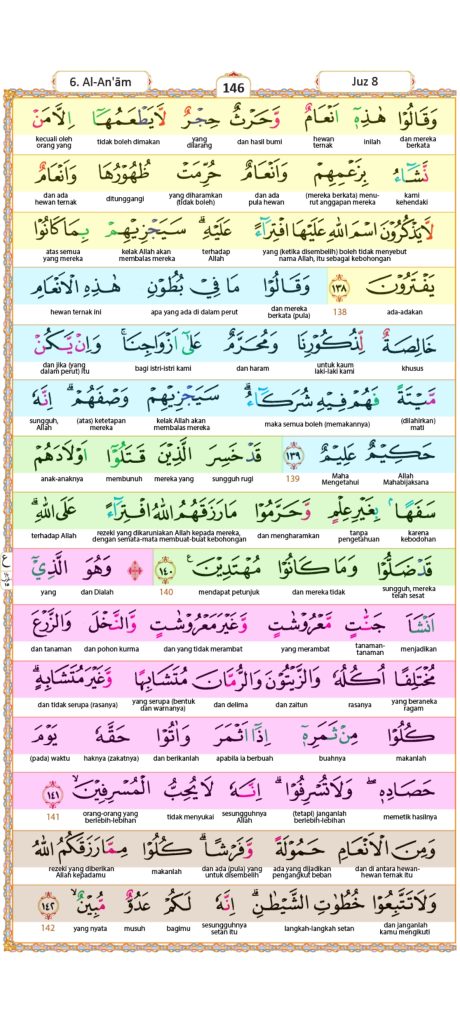 6. Al-An'ām
146
Juz 8
وَقَالُوْا هٰذِهٖٓ اَنْعَامٌ وَّحَرْثٌ حِجْرٌ لَّا يَطْعَمُهَآ اِلَّا مَنْ
dan mereka berkata inilah hewan ternak dan hasil bumi yang dilarang tidak boleh dimakan kecuali oleh orang yang
نَّشَاۤءُ بِزَعْمِهِمْ وَاَنْعَامٌ حُرِّمَتْ ظُهُوْرُهَا وَاَنْعَامٌ
kami kehendaki (mereka berkata) menurut anggapan mereka dan ada pula hewan yang diharamkan (tidak boleh) ditunggangi dan ada hewan ternak
لَّا يَذْكُرُوْنَ اسْمَ اللّٰهِ عَلَيْهَا افْتِرَاۤءً عَلَيْهِۗ سَيَجْزِيْهِمْ بِمَا كَانُوْا
yang (ketika disembelih) boleh tidak menyebut nama Allah, itu sebagai kebohongan terhadap Allah kelak Allah akan membalas mereka atas semua yang mereka
يَفْتَرُوْنَ ١٣٨ وَقَالُوْا مَا فِيْ بُطُوْنِ هٰذِهِ الْاَنْعَامِ
ada-adakan 138 dan mereka berkata (pula) apa yang ada di dalam perut hewan ternak ini
خَالِصَةٌ لِّذُكُوْرِنَا وَمُحَرَّمٌ عَلٰٓى اَزْوَاجِنَاۚ وَاِنْ يَّكُنْ
khusus untuk kaum laki-laki kami dan haram bagi istri-istri kami dan jika (yang dalam perut) itu
مَّيْتَةً فَهُمْ فِيْهِ شُرَكَاۤءُۗ سَيَجْزِيْهِمْ وَصْفَهُمْۗ اِنَّهٗ
(dilahirkan) mati maka semua boleh (memakannya) kelak Allah akan membalas mereka (atas) ketetapan mereka sungguh, Allah
حَكِيْمٌ عَلِيْمٌ ١٣٩ قَدْ خَسِرَ الَّذِيْنَ قَتَلُوْٓا اَوْلَادَهُمْ
Allah Mahabijaksana Maha Mengetahui 139 sungguh rugi mereka yang membunuh anak-anaknya
سَفَهًاۢ بِغَيْرِ عِلْمٍ وَّحَرَّمُوْا مَا رَزَقَهُمُ اللّٰهُ افْتِرَاۤءً عَلَى اللّٰهِۗ
karena kebodohan tanpa pengetahuan dan mengharamkan rezeki yang dikaruniakan Allah kepada mereka, dengan semata-mata membuat-buat kebohongan terhadap Allah
قَدْ ضَلُّوْا وَمَا كَانُوْا مُهْتَدِيْنَ ١٤٠ وَهُوَ الَّذِيْٓ
sungguh, mereka telah sesat dan mereka tidak mendapat petunjuk 140 dan Dialah yang
اَنْشَاَ جَنّٰتٍ مَّعْرُوْشٰتٍ وَّغَيْرَ مَعْرُوْشٰتٍ وَّالنَّخْلَ وَالزَّرْعَ
menjadikan tanaman-tanaman yang merambat dan yang tidak merambat dan pohon kurma dan tanaman
مُخْتَلِفًا اُكُلُهٗ وَالزَّيْتُوْنَ وَالرُّمَّانَ مُتَشَابِهًا وَّغَيْرَ مُتَشَابِهٍۗ
yang beraneka ragam rasanya dan zaitun dan delima yang serupa (bentuk dan warnanya) dan tidak serupa (rasanya)
كُلُوْا مِنْ ثَمَرِهٖٓ اِذَآ اَثْمَرَ وَاٰتُوْا حَقَّهٗ يَوْمَ
makanlah buahnya apabila ia berbuah dan berikanlah haknya (zakatnya) (pada) waktu
حَصَادِهٖۖ وَلَا تُسْرِفُوْاۗ اِنَّهٗ لَا يُحِبُّ الْمُسْرِفِيْنَۙ ١٤١
memetik hasilnya (tetapi) janganlah berlebih-lebihan sesungguhnya Allah tidak menyukai orang-orang yang berlebih-lebihan 141
وَمِنَ الْاَنْعَامِ حَمُوْلَةً وَّفَرْشًاۗ كُلُوْا مِمَّا رَزَقَكُمُ اللّٰهُ
dan di antara hewan-hewan ternak itu ada yang dijadikan pengangkut beban dan ada (pula) yang untuk disembelih makanlah rezeki yang diberikan Allah kepadamu
وَلَا تَتَّبِعُوْا خُطُوٰتِ الشَّيْطٰنِۗ اِنَّهٗ لَكُمْ عَدُوٌّ مُّبِيْنٌۙ ١٤٢
dan janganlah kamu mengikuti langkah-langkah setan sesungguhnya setan itu bagimu musuh yang nyata 142